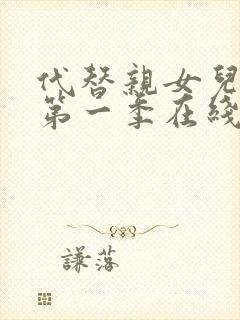 代替親女兒
第一季在綫
謙落